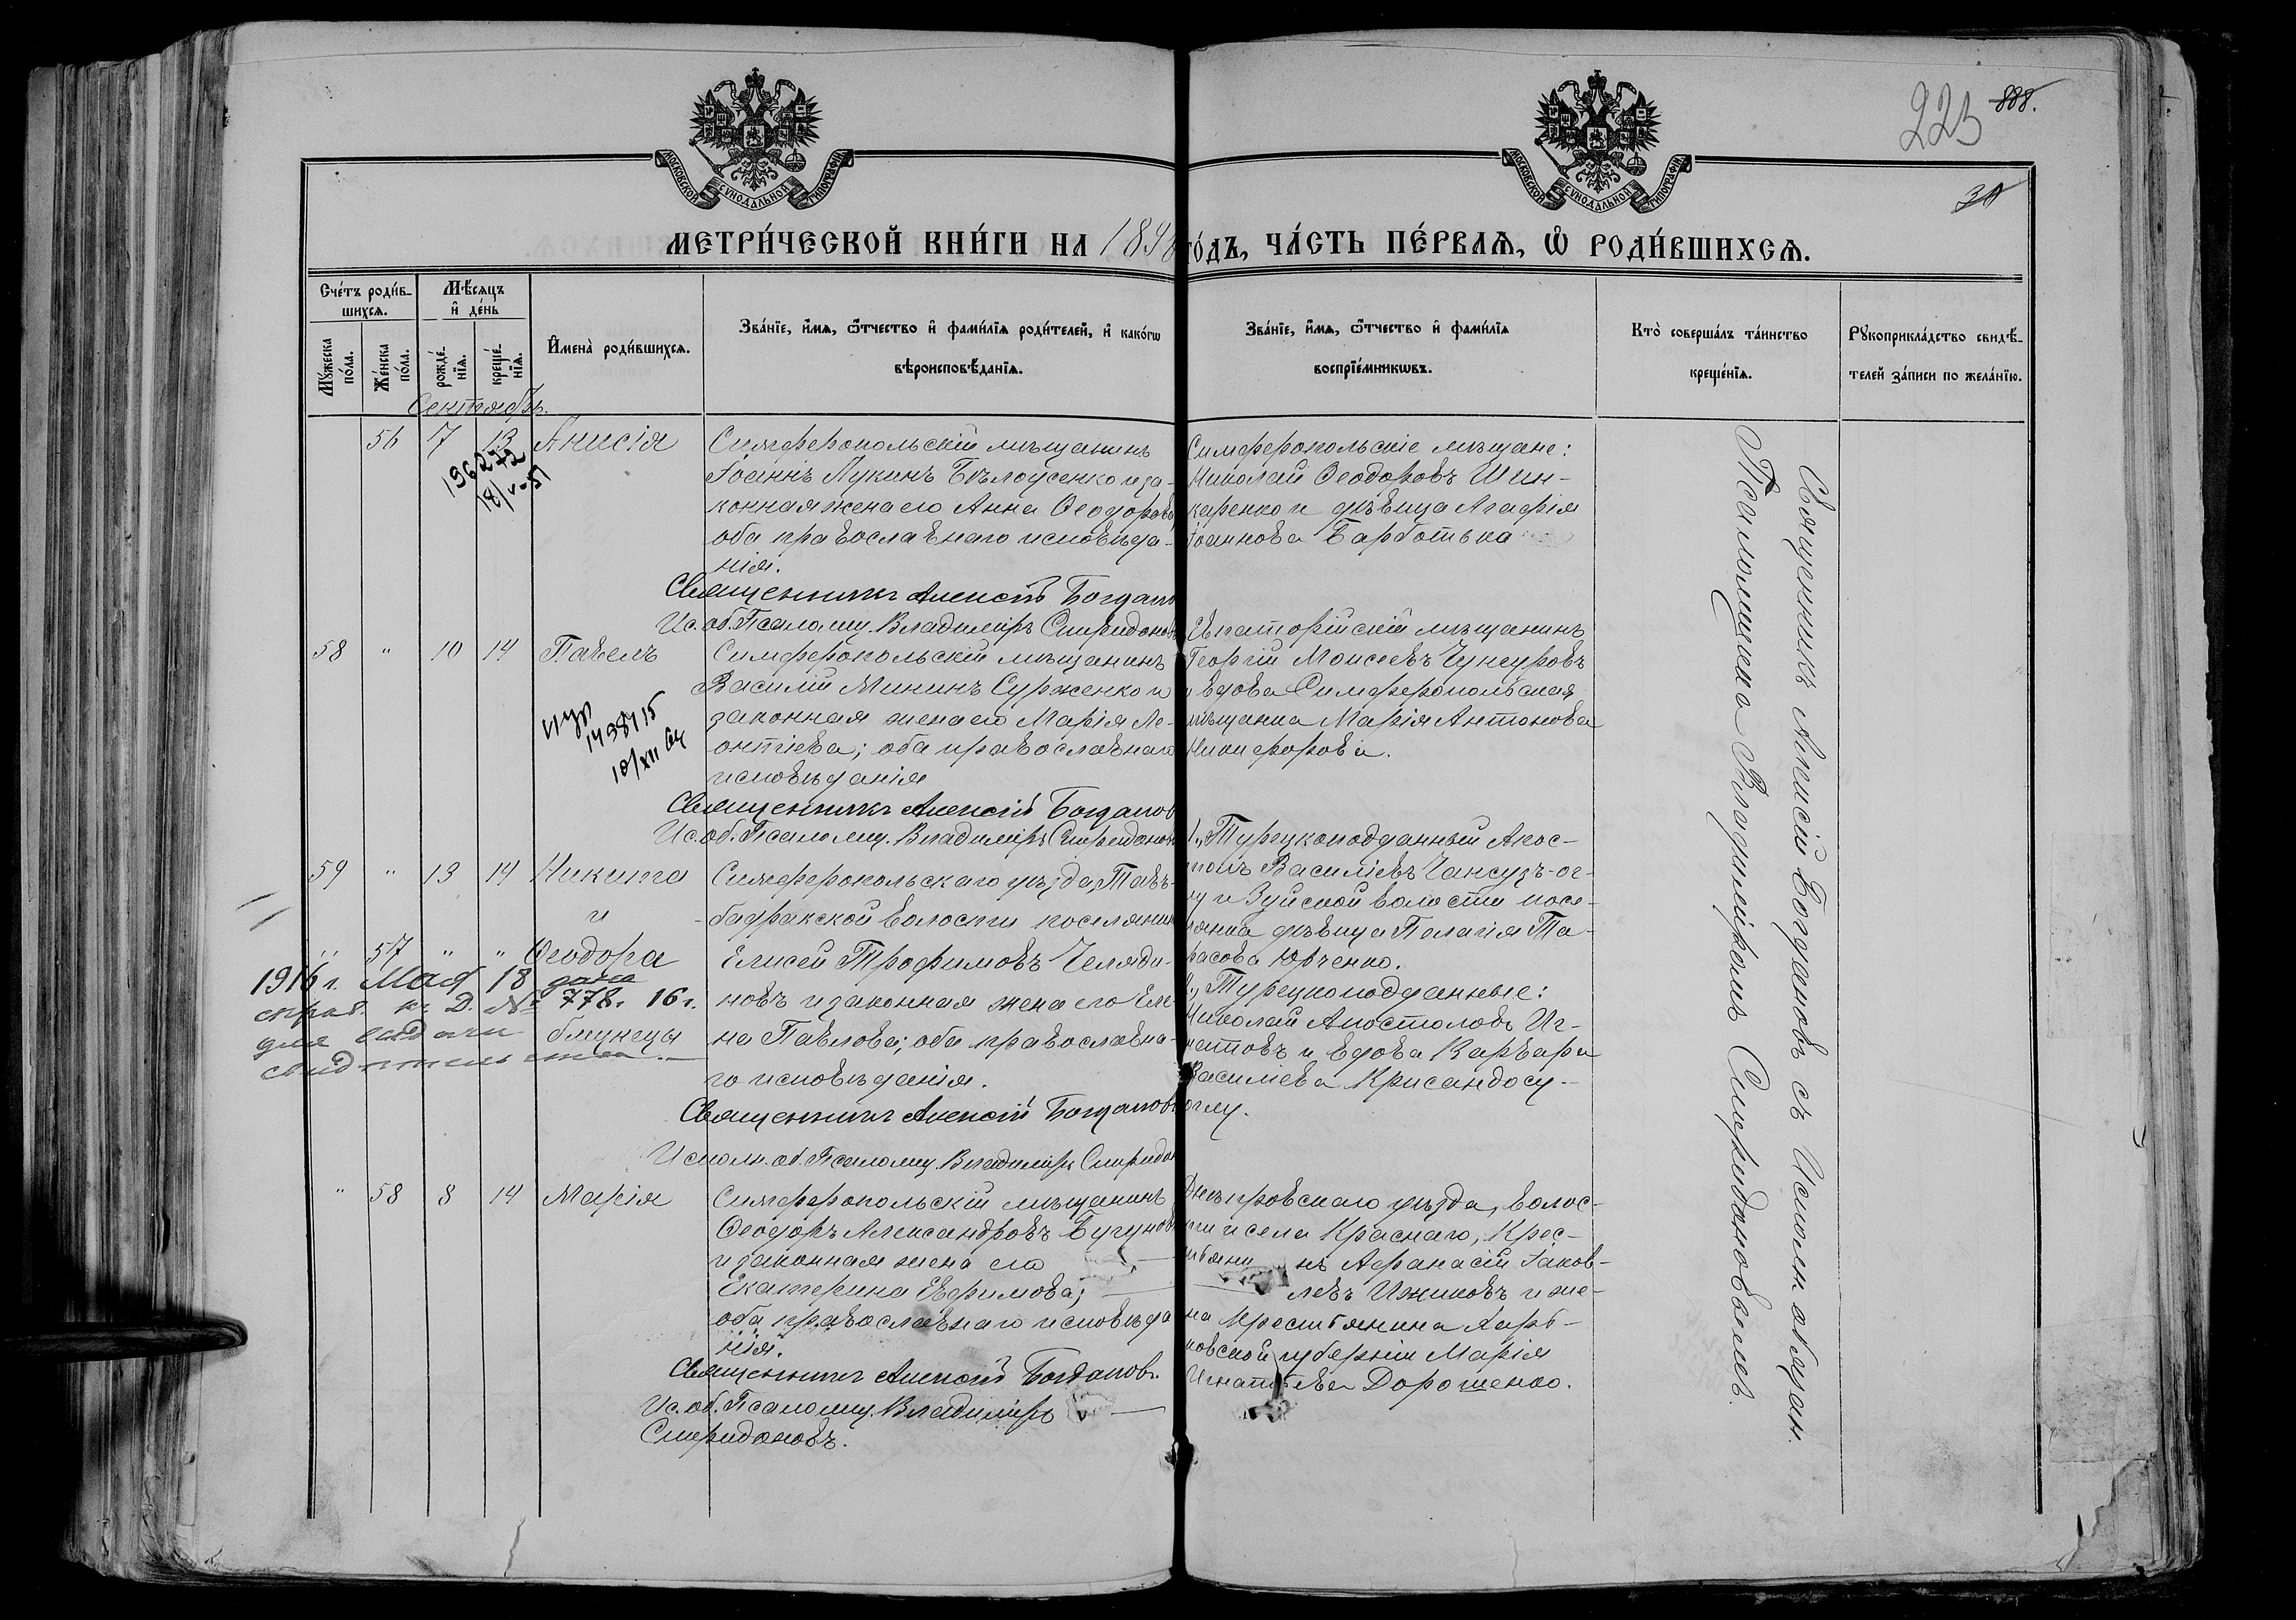 223 888.
30
МОСКОВСКОЙ СУНОДАЛЬНОЙ ТИПОГРАФІИ
МОСКОВСКОЙ СУНОДАЛЬНОЙ ТИПОГРАФІИ
МЕТРИ́ЧЕСКОЙ КНИ́ГИ НА 1898 ГО́ДЪ, ЧА́СТЬ ПЕ́РВАѦ, Ѽ РОДИ́ВШИХСѦ.
Сче́тъ роди́в-
шихсѧ.
Мꙋ́жеска по́ла.
Же́нска по́ла.
Мѣ́сѧцъ
и҆ де́нь
рожде́-
нїѧ.
креще́-
нїѧ.
И҆мена̀ роди́вшихсѧ.
Зва́нїе, и҆́мѧ, ѻ҆́тчество и҆ фами́лїѧ роди́телей, и҆ како́гѡ
вѣроисповѣ́данїѧ.
Зва́нїе, и҆́мѧ, ѻ҆́тчество и҆ фами́лїѧ
воспрїе́мникѡвъ.
Кто̀ соверша́лъ та́инство
креще́нїѧ.
Рꙋкоприкла́дство свидѣ́-
телей за́писи по жела́нїю.
Сентябрь.
56 7 13 Анисія
196272
18/V-51
Симферопольскій мѣщанинъ
Іоаннъ Лукинъ Бѣлоусенко и за-
конная жена его Анна Ѳеодорова
оба православнаго исповѣда-
нія.
Священникъ Алексій Богданов
Ис. об. Псаломщ. Владиміръ Спиридонов
Симферопольскіе мѣщане:
Николай Ѳеодоровъ Шин-
каренко и дѣвица Агафія
Іоаннова Барботъка
58 " 10 14 Павелъ
1498715
10/XII
Симферопольскій мѣщанинъ
Василій Мининъ Сурженко и
законная жена его Марія Ле-
онтіева; оба православнаго
исповѣданія
Священникъ Алексій Богданов
Ис. об. Псаломщ. Владиміръ Спиридонов
Евпаторійскій мѣщанинъ
Георгій Моисеевъ Чунгуровъ
и вдова Симферопольская
мѣщанка Марія Антонова
Никифорова.
59 " 13 14 Никита
и
" 57 " " Ѳеодора
близнецы
1916 г. Мая 18 дана
справ. к. Д. № 778. 16 г.
для выдачи
свидѣтельства.
Симферопольскаго уѣзда, Тавъ-
бадракской волости поселянин
Елисей Трофимовъ Челяди-
новъ и законная жена его Еле
на Павлова; оба православна-
го исповѣданія.
Священникъ Алексій Богдановъ
Исполн. об. Псаломщ. Владиміръ Спиридон
1., Турецкоподданный Апос-
толъ Василіевъ Чансузъ-ог-
лу и Зуйской волости посе-
лянка дѣвица Пелагія Та-
расова Юрченко.
2., Турецкоподданные:
Николай Апостоловъ Иг-
натовъ и вдова Варвара
Василіева Крисандосу-
оглу.
" 58 8 14 Марія
Симферопольскій мѣщанинъ
Ѳеодоръ Александровъ Бугунов
и законная жена его
Екатерина Ефимова;
оба православнаго исповѣда
нія.
Священникъ Алексій Богдановъ.
Ис. об. Псаломщ. Владиміръ
Спиридоновъ.
Днѣпровскаго уѣзда, волос-
ти и села Краснаго, Крес-
тьянинъ Афанасій Іаков-
левъ Ижиковъ и же-
на крестьянина Харь-
ковской губерніи Марія
Игнатьева Дорошенко.
Священникъ Алексій Богдановъ съ Исполн. обязан.
Псаломщика Владиміромъ Спиридоновымъ.